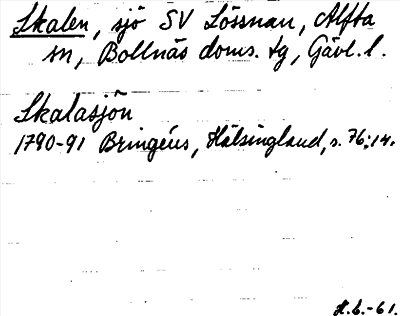 Skalen, sjö SV Lössnan, Alfta
sn, Bollnäs doms. tg, Gävl. l.
Skalasjön
1790-91 Bringéus, Hälsingland, s. 76; 14.
H.L.-61.